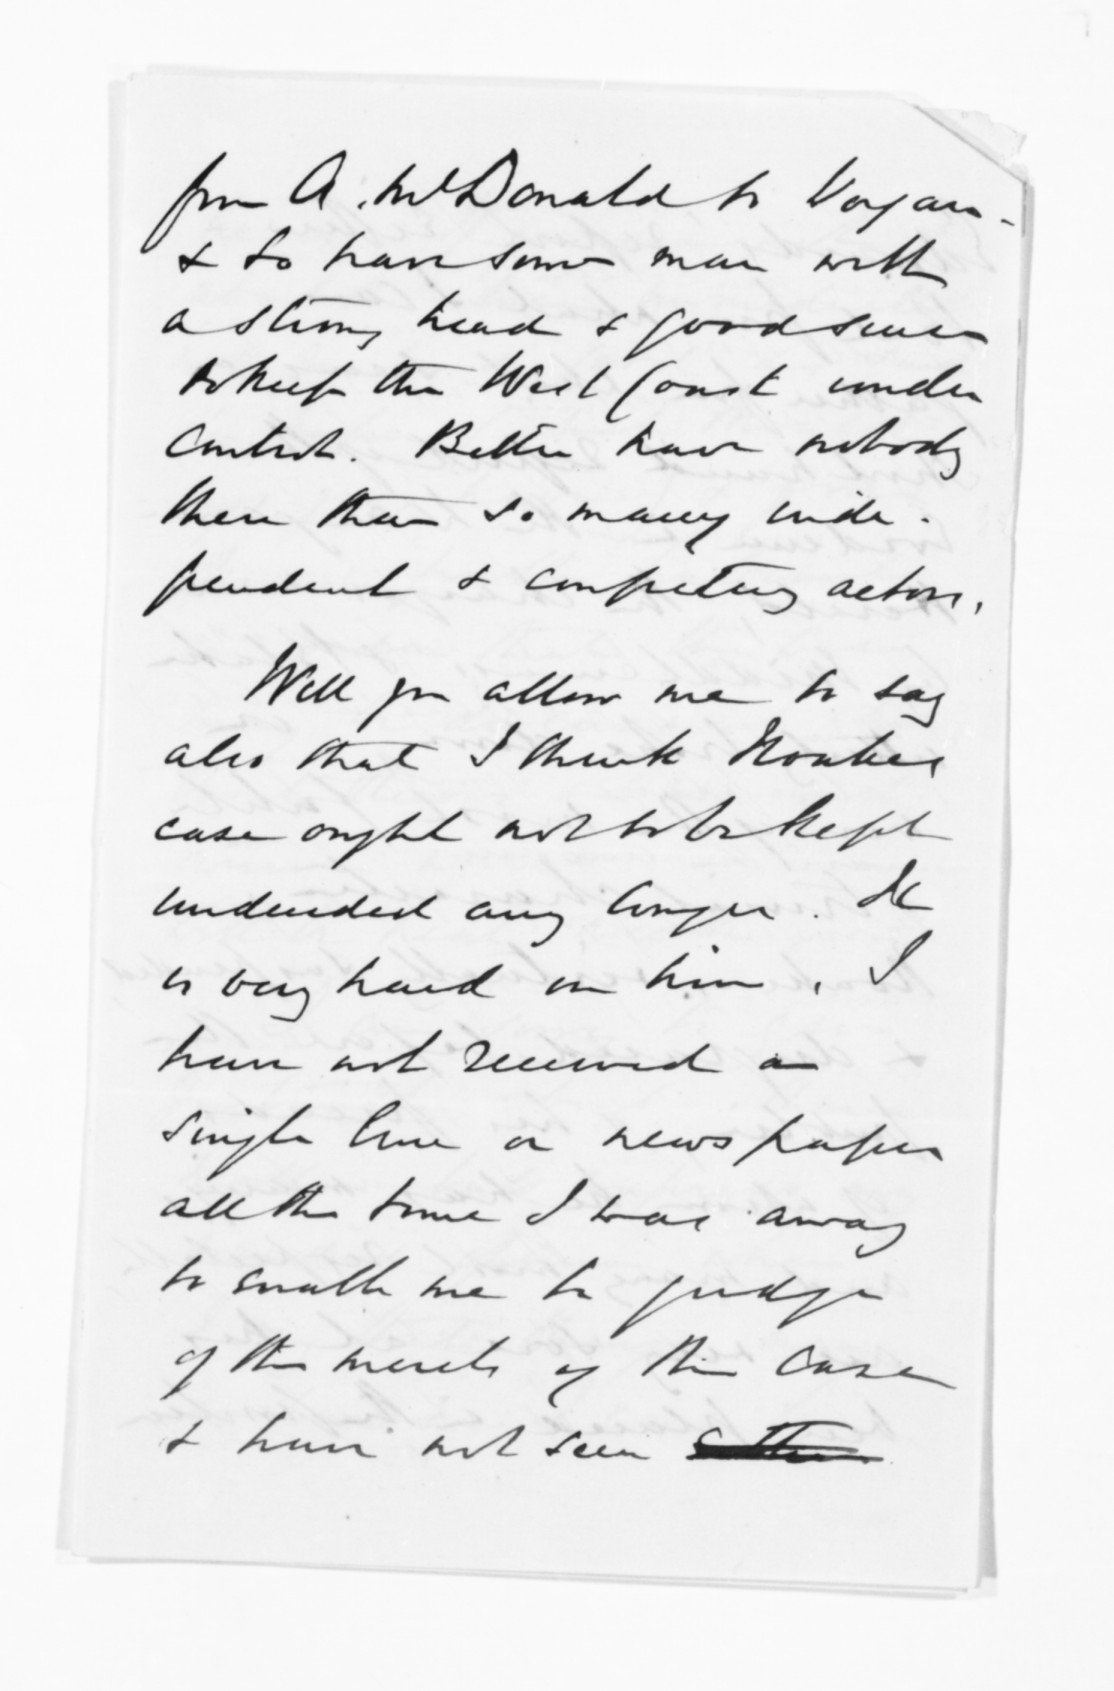 from A. McDonald to Vogan -
& to have some man with
a strong head & good sense
to keep the West Coast under
control. Better have nobody
there than so many inde-
pendent & competing actors.
Will you allow me to say
also that I think
case ought not to be kept
undecided any longer. It
is very hard on him. I
have not received a
single line or newspaper
all the time I was away
to enable me to judge
of the merits of the case
& have not seen